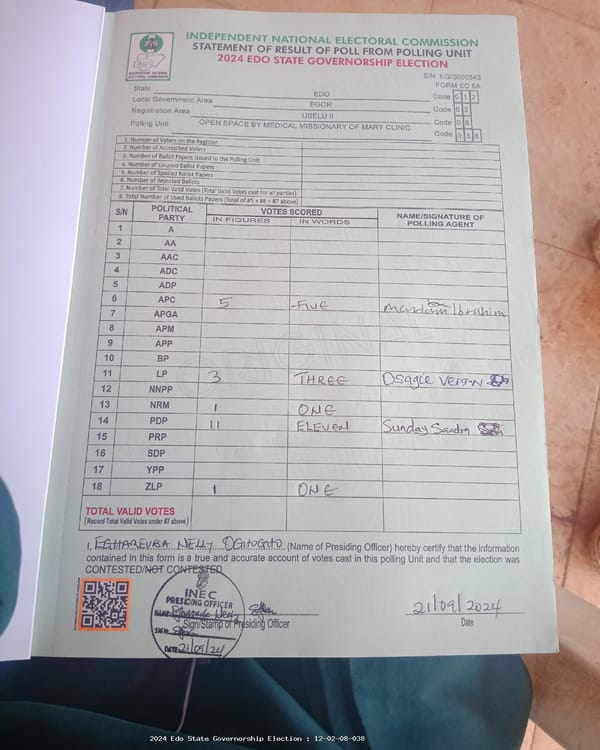 INDEPENDENT NATIONAL ELECTORAL COMMISSION
STATEMENT OF RESULT OF POLL FROM POLLING UNIT
2024 EDO STATE GOVERNORSHIP ELECTION
INDEPENDENT NATIONAL ELECTORAL COMMISSION
S/N EG/0000343
FORM EC 8A
State EDO Code 0 1 2
Local Government Area EGOR Code 0 2
Registration Area USELU II Code 0 8
Polling Unit OPEN SPACE BY MEDICAL MISSIONARY OF MARY CLINIC Code 0 3 8
1. Number of Voters on the Register
2. Number of Accredited Voters
3. Number of Ballot Papers Issued to the Polling Unit
4. Number of Unused Ballot Papers
5. Number of Spoiled Ballot Papers
6. Number of Rejected Ballots
7. Number of Total Valid Votes (Total Valid Votes cast for all parties)
8. Total Number of Used Ballots Papers (Total of #5 + #6 + #7 above)
S/N POLITICAL PARTY VOTES SCORED NAME/SIGNATURE OF POLLING AGENT
IN FIGURES IN WORDS
1 A
2 AA
3 AAC
4 ADC
5 ADP
6 APC 5 FIVE Mariam Ibrahim
7 APGA
8 APM
9 APP
10 BP
11 LP 3 THREE Osagie
12 NNPP
13 NRM 1 ONE
14 PDP 11 ELEVEN Sunday Sandra
15 PRP
16 SDP
17 YPP
18 ZLP 1 ONE
TOTAL VALID VOTES
(Record Total Valid Votes under #7 above)
I, EGHAREVBA NELLY (Name of Presiding Officer) hereby certify that the information
contained in this form is a true and accurate account of votes cast in this polling Unit and that the election was
CONTESTED/NOT CONTESTED
INEC
PRESIDING OFFICER
NAME:
SIGN:
DATE: 21/09/24
Sign/Stamp of Presiding Officer
21/09/2024
Date
2024 Edo State Governorship Election : 12-02-08-038